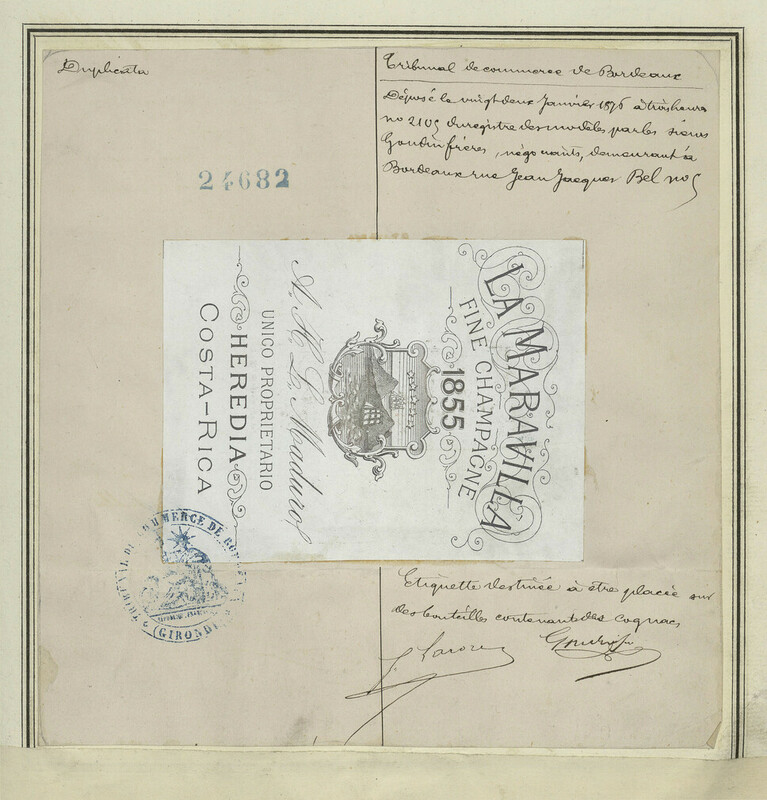 Duplicata
24682
Tribunal de commerce de Bordeaux
Déposé le vingt deux Janvier 1876 à trois heures
no 2105 du registre des modèles par les sieurs
Goudin frères, négociants, demeurant à
Bordeaux rue Jean Jacques Bel no 5
LA MARAVILLA
FINE CHAMPAGNE
1855
A. H. L. Maduro
UNICO PROPRIETARIO
HEREDIA
COSTA-RICA
TRIBUNAL DE COMMERCE DE BORDEAUX
(GIRONDE)
Etiquette destinée à être placée sur
des bouteilles contenant des cognacs